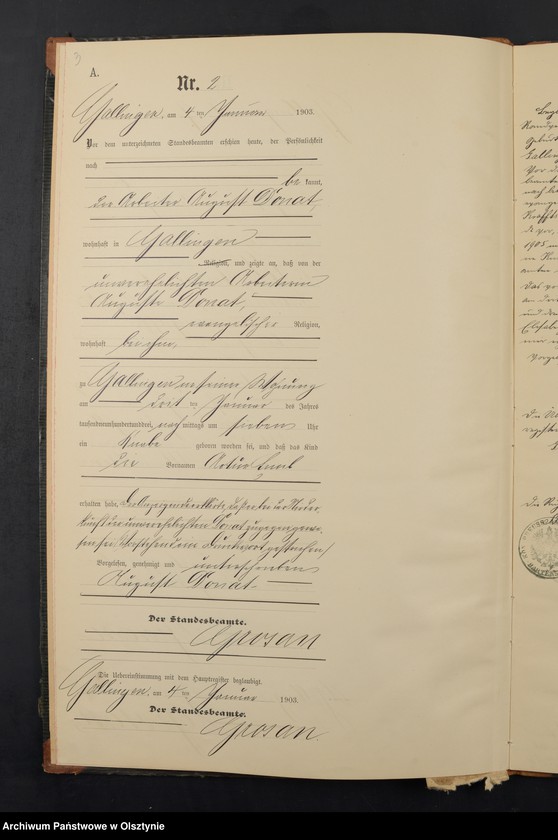 3
A.
Nr. 2
Gallingen, am 4 ten Januar 1903.
Vor dem unterzeichneten Standesbeamten erschien heute, der Persönlichkeit
nach
be kannt,
der Arbeiter August Donat,
wohnhaft in Gallingen
Religion, und zeigte an, daß von der
unverehelichten Arbeiterin
Auguste Donat,
evangelischer Religion,
wohnhaft bei ihm,
zu Gallingen in seiner Wohnung
am ten Januar des Jahres
tausendneunhundertunddrei, nach mittags um sieben Uhr
ein Knabe geboren worden sei, und daß das Kind
Vornamen Artur
erhalten habe. Der Anzeigende erklärte, daß er bei der Nieder-
kunft der unverehelichten Donat zugegen gewe-
sen sei. Vorstehend ein Druckwort gestrichen
Vorgelesen, genehmigt und unterschrieben
August Donat
Der Standesbeamte.
Grosan
Die Uebereinstimmung mit dem Hauptregister beglaubigt.
Gallingen, am 4 ten Januar 1903.
Der Standesbeamte.
Grosan.
Archiwum Państwowe w Olsztynie